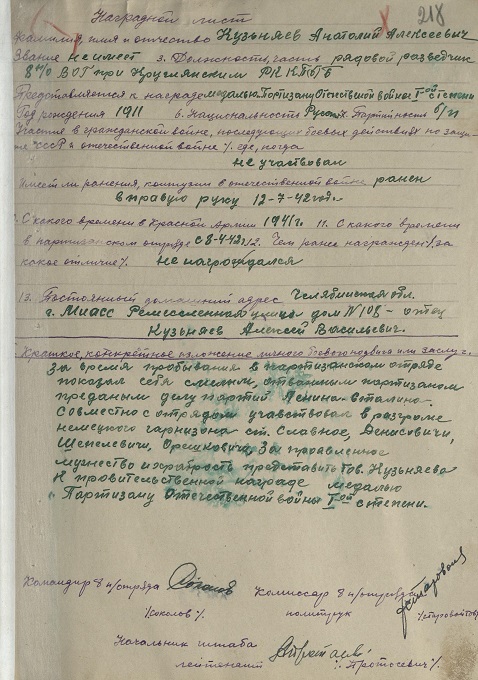 218
Наградной лист
Фамилия, имя и отчество Кузьняев Анатолий Алексеевич
Звание не имеет 3. Должность, часть рядовой разведчик
8 п/о ВОГ при Круглянским РК КП/б/Б
Представляется к награде медалью Партизану Отечественной войны I ой степени
Год рождения 1911 6. Национальность Русский Партийность б/п
Участие в гражданской войне, последующих боевых действиях по защи-
те СССР и отечественной войне /. где, когда
не участвовал
Имеет ли ранения, контузии в отечественной войне ранен
в правую руку 12-7-42 год.
С какого времени в Красной Армии 1941 г. 11. С какого времени
в партизанском отряде с 8-4-42 г. 12. Чем ранее награжден /. за
какое отличие /. не награждался
13. Постоянный домашний адрес Челябинская обл.
г. Миасс Ремесленная улица дом № 108 - отец
Кузьняев Алексей Васильевич.
Краткое, конкретное изложение личного боевого подвига или заслуг.
За время пребывания в партизанском отряде
показал себя смелым, отважным партизаном
преданым делу партий Ленина - Сталина.
Совместно с отрядом учавствовал в разгроме
немецкого гарнизона ст. Славное, Денисовичи,
Шепелевичи, Орешковичи, За проявленное
мужество и храбрость представить тов. Кузьняева
К провительственной награде медалью
Партизану Отечественной войны I ой степени.
Командир 8 п/отряда Комиссар 8 п/отряда
/соколов /. политрук /старовойтов
Начальник штаба
лейтенант /. Протосевич /.